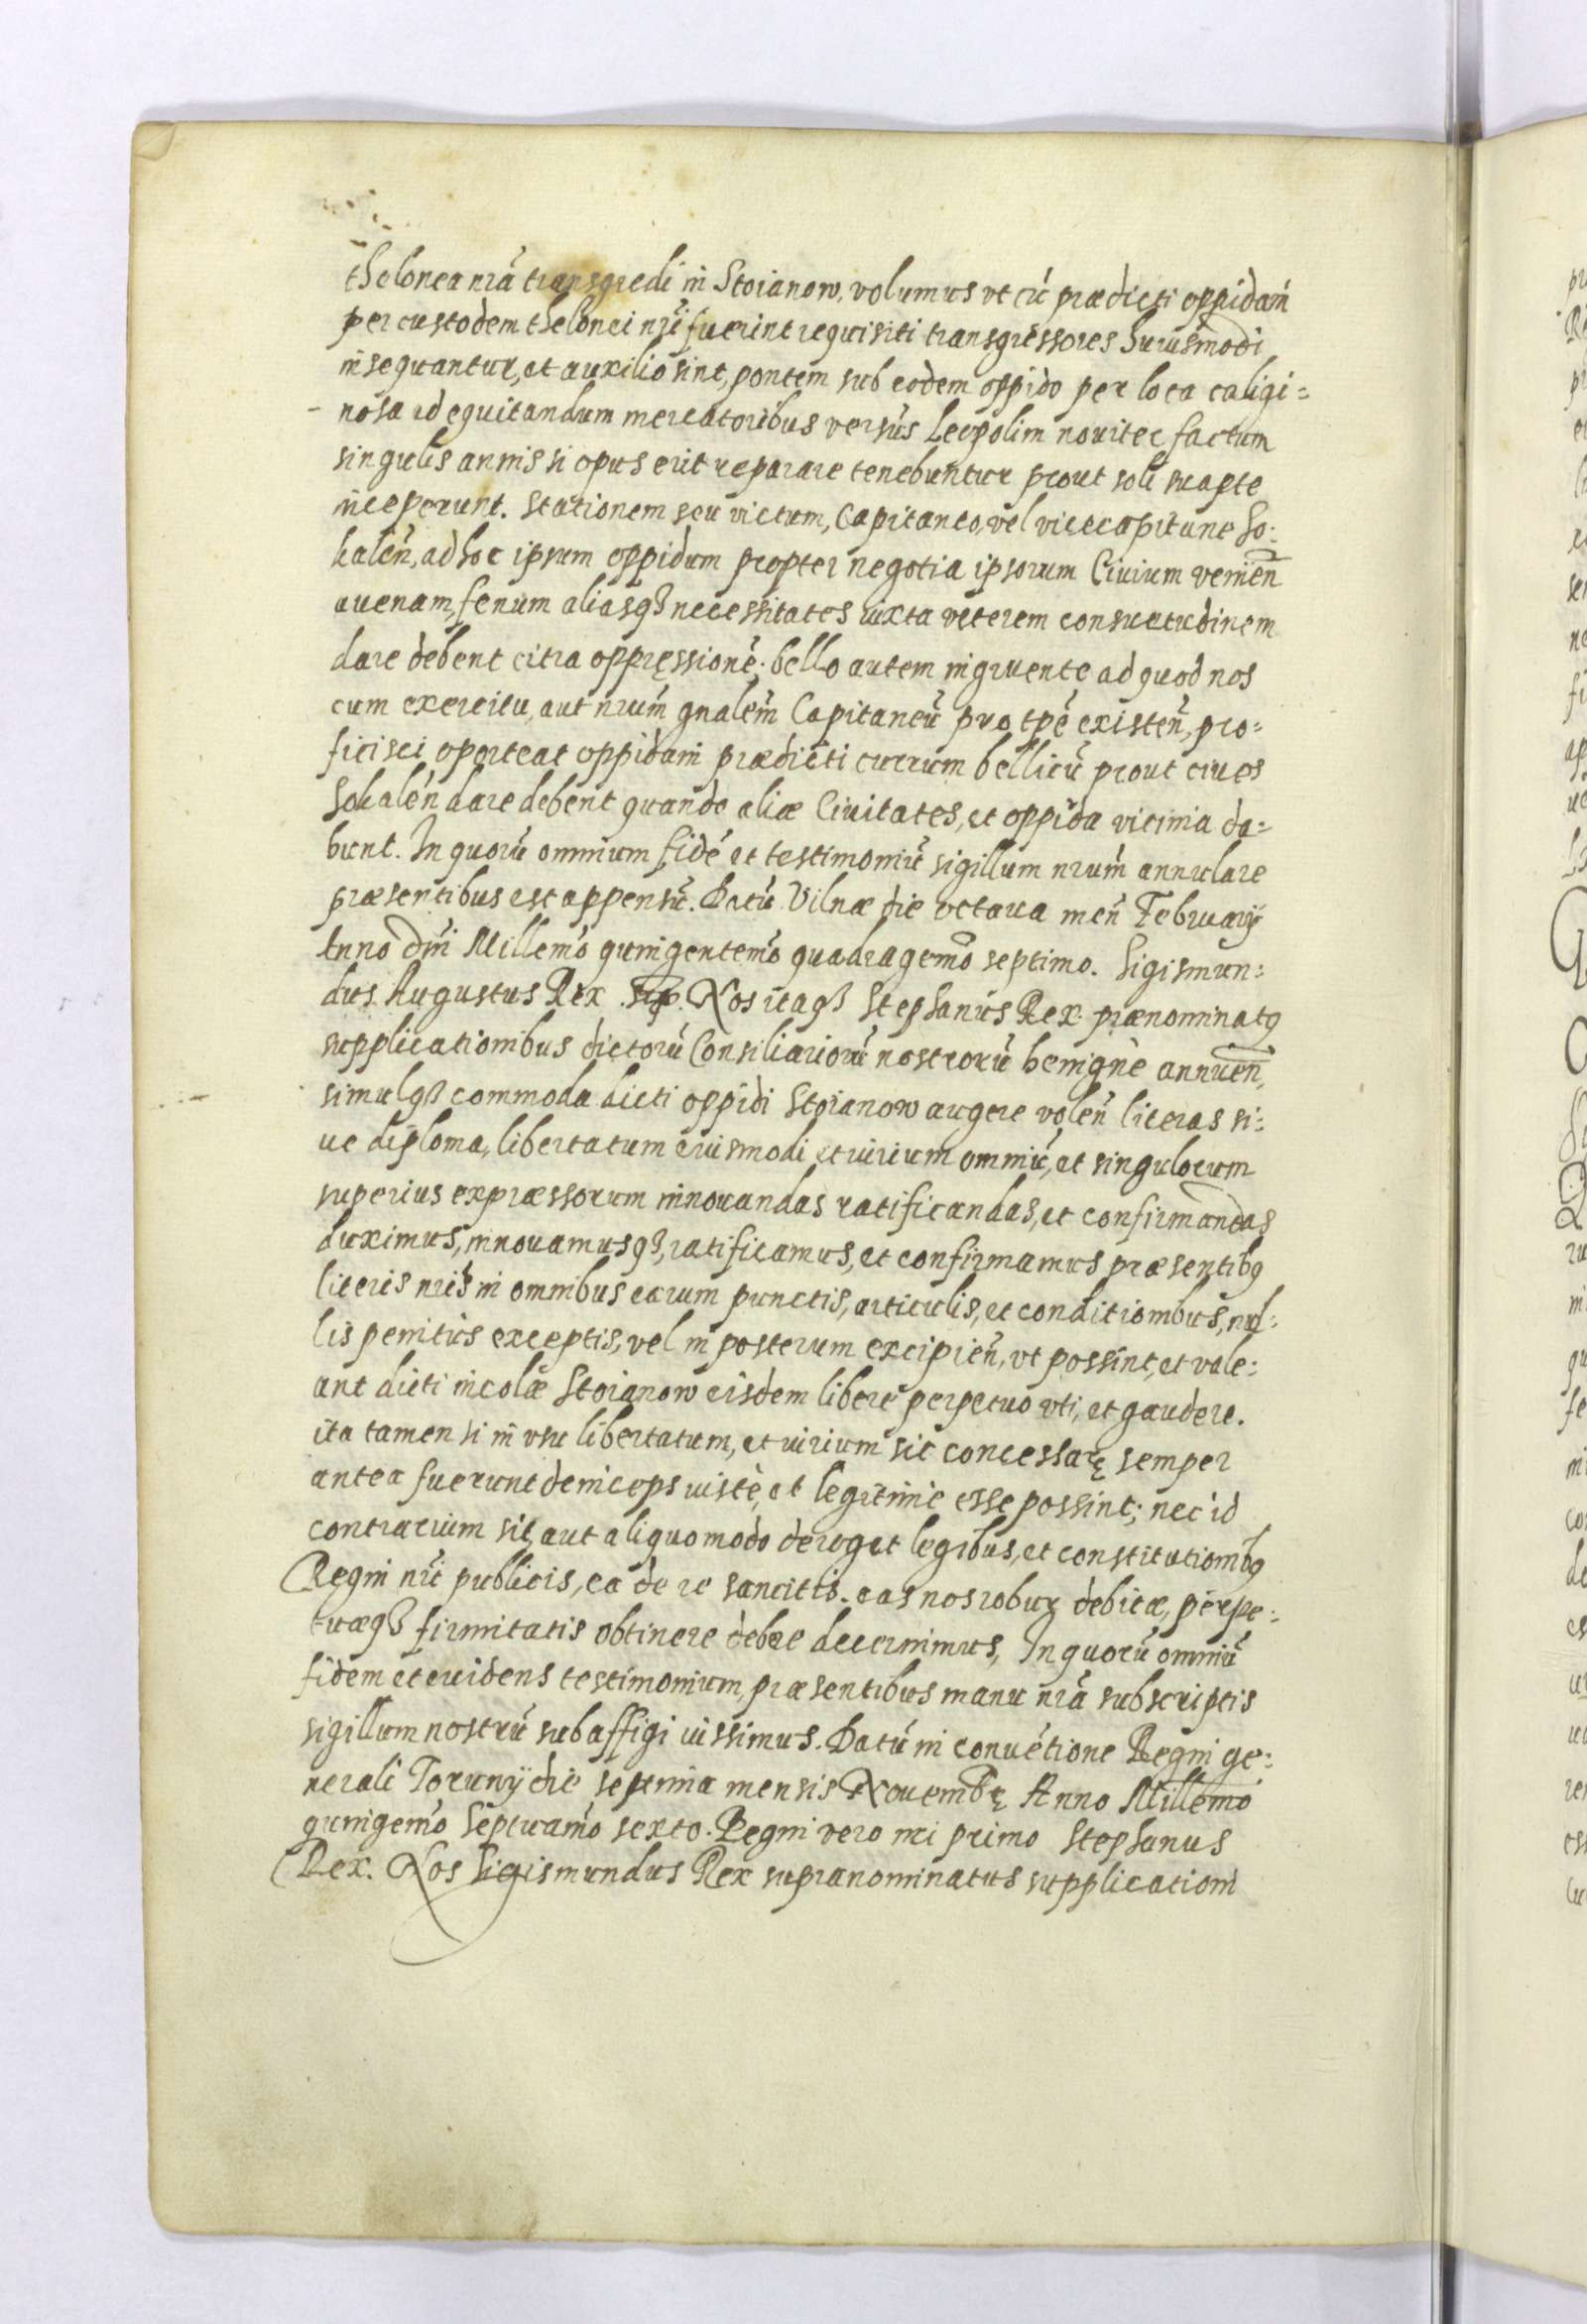 thelonea nrã transgredi in Stoianow, volumus vt cũ prædicti oppidani
per custodem thelonei nrĩ fuerint requisiti transgressores huiusmodi
insequantur, et auxilio sint, pontem sub eodem oppido per loca caligi=
nosa ad equitandum mercatoribus versũs Leopolim nouiter factum
singulis annis si opus erit reparare tenebuntur prout soli suapte
inceperunt. Stationem seu victum, Capitaneo, vel vicecapitane So:
kaleñ, ad hoc ipsum oppidum propter negotia ipsorum Ciuium venieñ
auenam, fenum aliasqz necessitates iuxta veterem consuetudinem
dare debent citra oppręssionẽ; bello autem ingruente ad quod nos
cum exercitu, aut nrum̃ gnalem̃ Capitaneũ pro tpẽ existeñ, pro=
ficisci oporteat oppidani prædicti currum bellicũ prout ciues
Sokaleñ dare debent quando aliæ Ciuitates, et oppida vicinia da=
bunt. In quorũ omnium fidẽ et testimoniũ sigillum nrum̃ annulare
præsentibus est appensũ. Datũ Vilnæ die octaua meñ Februarij
Anno Dñi Millemõ quingentemõ quadragemõ septimo. Sigismun:
dus Augustus Rex Nos itaqz Stephanus Rex prænominatq
supplicationibus dictorũ Consiliariorũ nostrorũ benignè annueñ,
simulqz commoda dicti oppidi Stoianow augere voleñ literas si:
ue diploma, libertatum eiusmodi et iurium omniũ, et singulorum
superius expræssorum innouandas ratificandas, et confirmandas
duximus, innouamusqz, ratificamus, et confirmamus præsentibq
literis nrĩs in omnibus earum punctis, articulis, et conditionibus, nul:
lis penitùs exceptis, vel in posterum excipieñ, vt possint, et vale:
ant dicti incolæ Stoianow eisdem liberè perpetuo vti, et gaudere.
ita tamen si in vsu libertatum, et iurium sic concessarę semper
antea fuerunt deinceps iustè, et legitimè esse possint; nec id
contrarium sit, aut aliquo modo deroget legibus, et constitutionibq
Regni nrĩ publicis, ea de re sancitis. eas nos robur debitæ, perpe:
tuæqz firmitatis obtinere debere decernimus, In quorũ omniũ
fidem et euidens testimonium, præsentibus manu nrã subscriptis
sigillum nostrũ subaffigi iussimus. Datũ in conuẽtione Regni ge:
nerali Torunij die septima mensis Nouembę Anno Millemo
quingemõ Septuamõ sexto. Regni vero nri primo Stephanus
Rex. Nos Sigismundus Rex supranominatus supplicationi